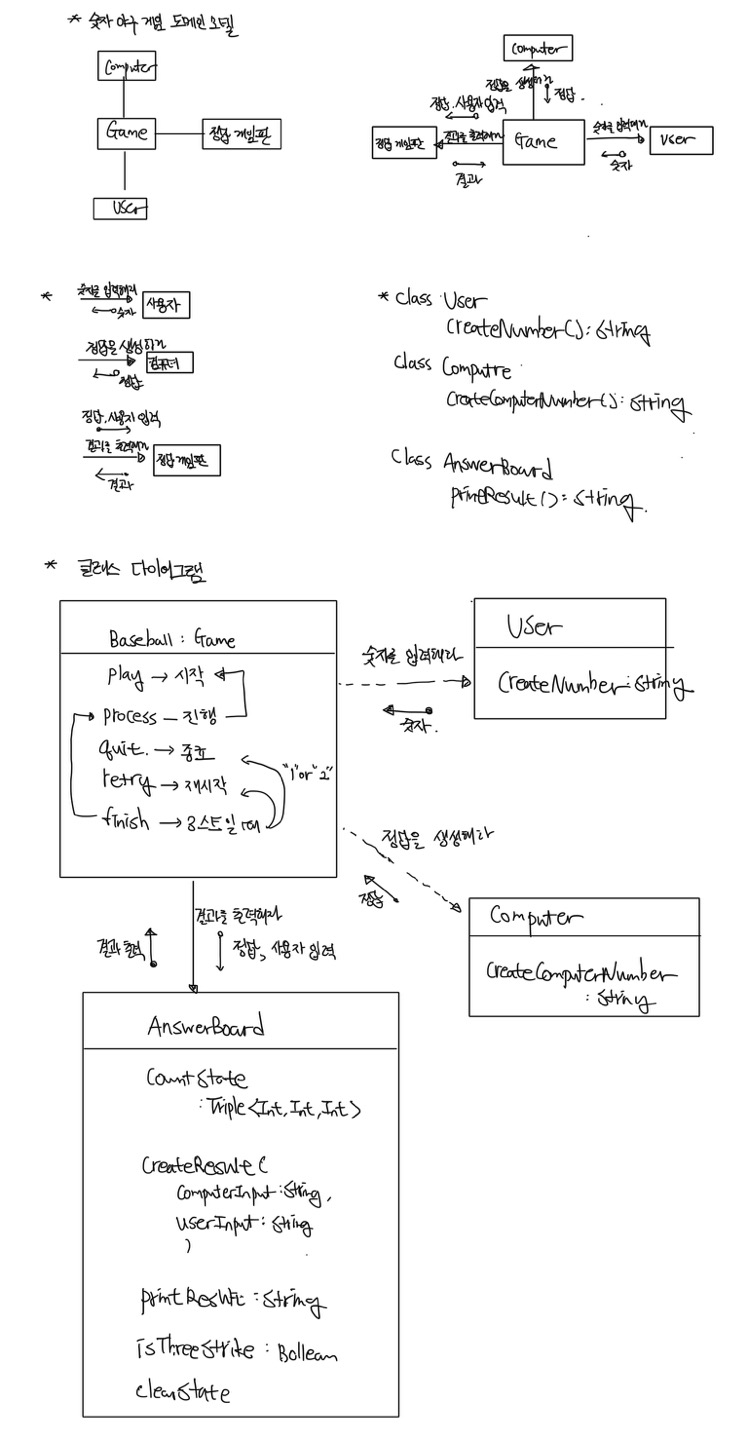 * 숫자 야구 게임 도메인 모델
Computer
Game
정답 게임판
User
Computer
정답을 생성하라
정답.
정답, 사용자 입력
정답 게임판
결과를 출력해라
Game
숫자를 입력해라
User
결과
숫자
*
숫자를 입력해라
사용자
숫자
정답을 생성하라
컴퓨터
정답
정답, 사용자 입력
결과를 출력해라
정답 게임판
결과
* Class User
CreateNumber(): String
Class Computre
CreateComputerNumber(): String
Class AnswerBoard
printResult(): String.
* 클래스 다이어그램
Baseball : Game
play → 시작
process - 진행
quit. → 종료
retry → 재시작
finish → 3스트일 때
"1" or "2"
숫자를 입력해라
숫자.
User
CreateNumber: String
정답을 생성해라
정답
Computer
CreateComputerNumber
: String
결과를 출력해라
결과 출력
정답, 사용자 입력
AnswerBoard
CountState
: Triple<Int, Int, Int>
CreateResult(
ComputerInput: String,
UserInput: String
)
printResult: String
isThreeStrike: Bollean
clearState